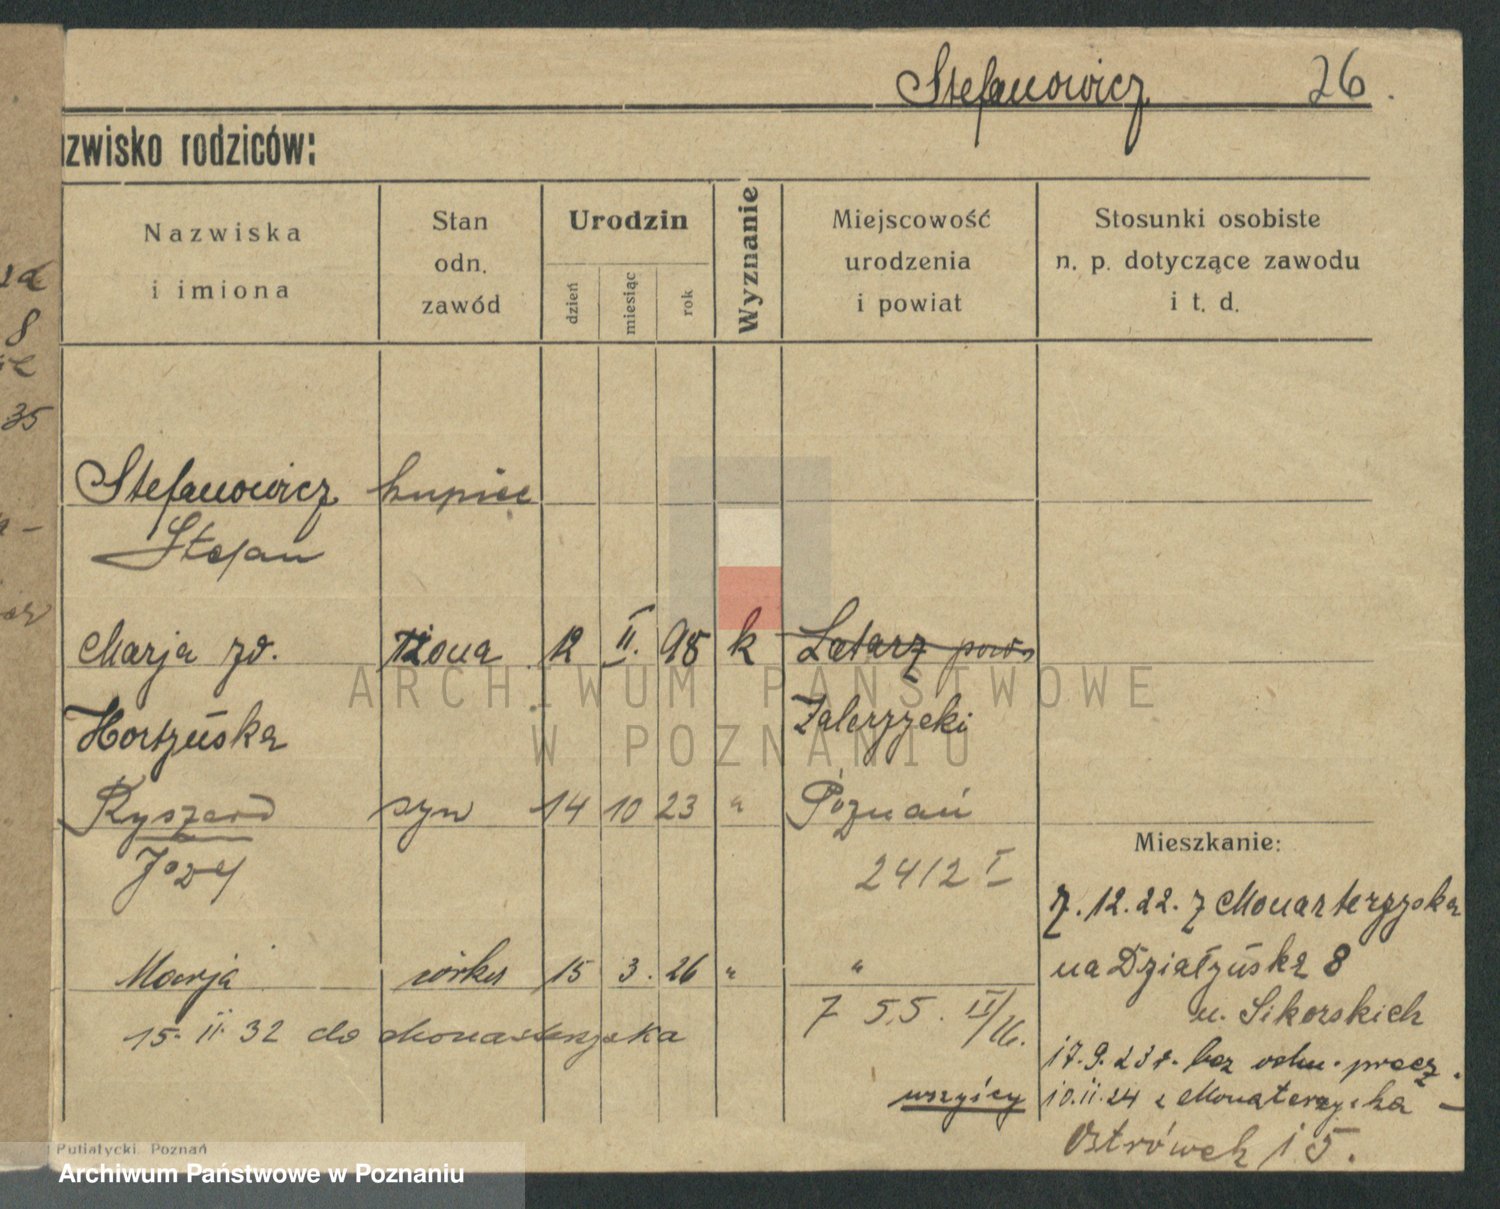 Stefanowicz 26.
azwisko rodziców:
Nazwiska
i imiona
Stan
odn.
zawód
Urodzin
dzień
miesiąc
rok
Wyznanie
Miejscowość
urodzenia
i powiat
Stosunki osobiste
n. p. dotyczące zawodu
i t. d.
8
35
Stefanowicz kupiec
Stefan
Marja zd. żona 12 II. 98 k Latarz pow.
Hortzuśka Zalerzzcki
Ryszard syn 14 10 23 " Poznań
Józef
2412 I
Mieszkanie:
7.12.22. z
na Działzuśka 8
Marja córka 15 3. 26 " "
u. Sikorskich
7 55. II/26.
15. II. 32 do
17.9.23r. bez
wszyścy 10.II.24 z
Ostrówek 15.
Putiatycki, Poznań
ARCHIWUM PAŃSTWOWE
W POZNANIU
Archiwum Państwowe w Poznaniu